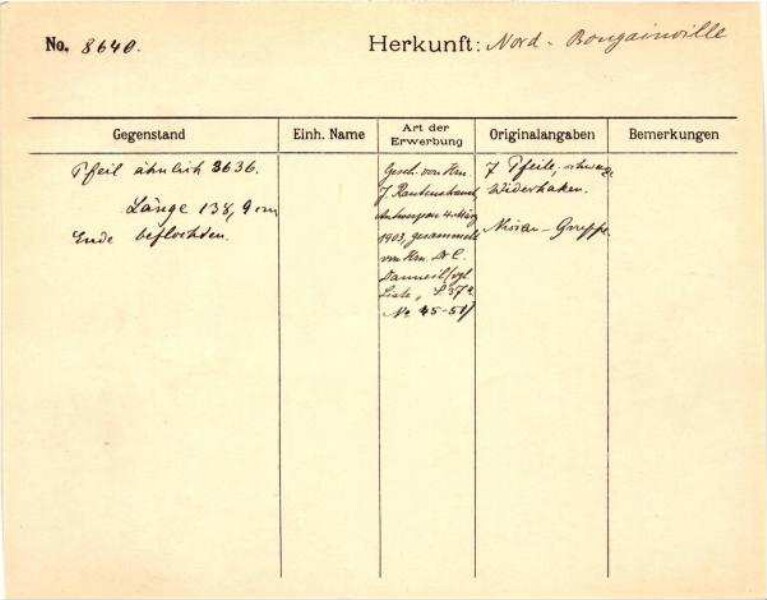 No. 8640.
Herkunft: Nord-Bougainville
Gegenstand
Einh. Name
Art der Erwerbung
Originalangaben
Bemerkungen
Pfeil ähnlich 3636.
Länge 138,9 cm
Ende beflochten.
Gesch. von Hrn.
J. Rautenstrauch,
Antwerpen 4. März
1903, gesammelt
von Hrn. Dr. C.
Danneil (vgl.
Liste, S. 37
No 45-51)
7 Pfeile, schwarze
Widerhaken.
Nissan-Gruppe.